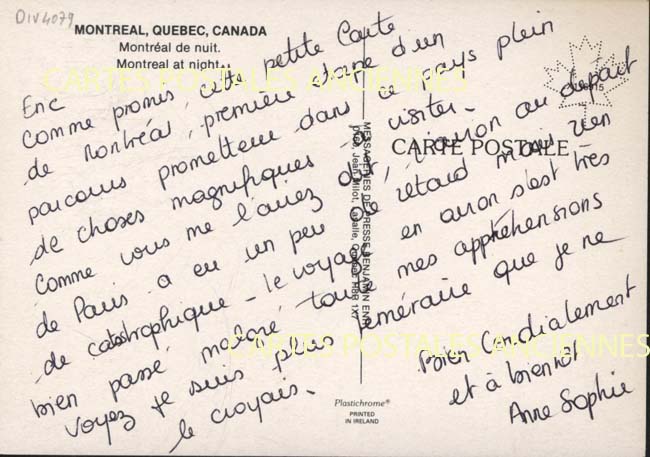 DIV4079
MONTREAL, QUEBEC, CANADA
Montréal de nuit.
Montreal at night.
CARTES POSTALES ANCIENNES
Eric
Comme promis, cette petite Carte
de Montréal, première étape d'un
parcours prometteur dans ce pays plein
de choses magnifiques à visiter.
Comme vous me l'aviez dit, l'avion au départ
de Paris a eu un peu de retard mais rien
de catastrophique - le voyage en avion s'est très
bien passé malgré toutes mes appréhensions
Voyez je suis plus téméraire que je ne
le croyais.
Bien Cordialement
et à bientôt
Anne Sophie
CARTE POSTALE
MESSAGERIES DE PRESSE BENJAMIN ENR.
Jean Milot, Lasalle, Québec H8R 1X7
CARTES POSTALES ANCIENNES
Plastichrome®
PRINTED
IN IRELAND